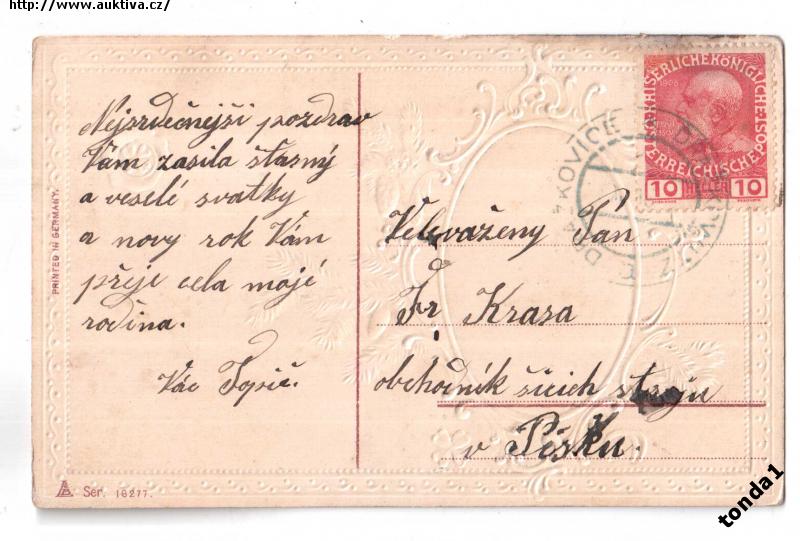 http://www.auktiva.cz/
Nejsrdečnější pozdrav
Vám zasila štasný
a veselé svatky
a nový rok Vám
přeje cela moje
rodina.
Vác
PRINTED IN GERMANY.
Ser. 16277.
KAISERLICHE KÖNIGLICHE ÖSTERREICHISCHE
1908
10 HELLER 10
KOVICE
Velevaženy Pan
Fr Krasa
obchodník šicich strojů
v Písku.
tonda1